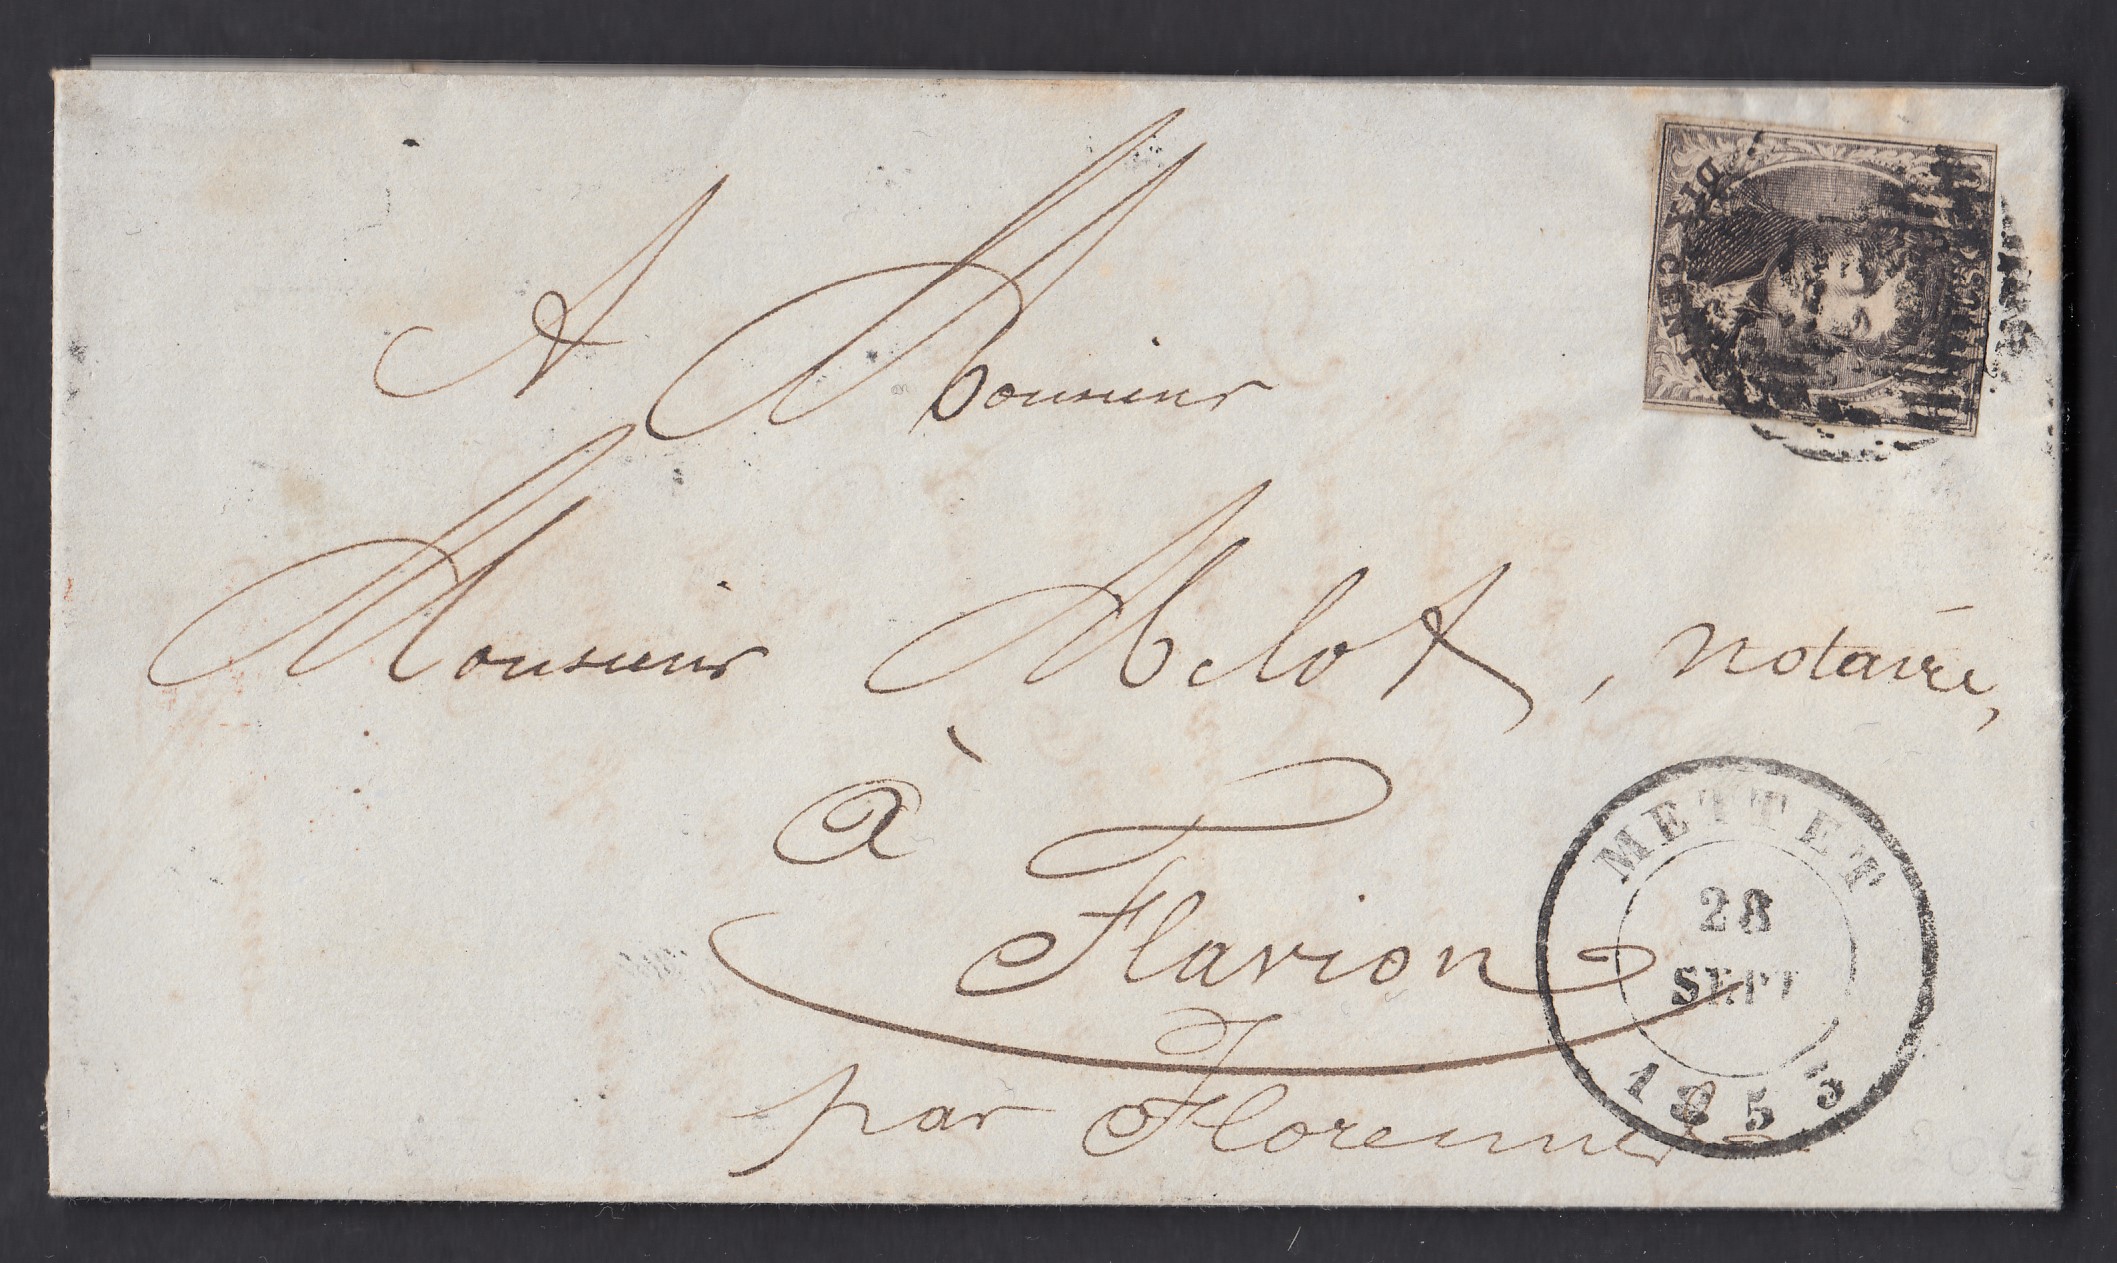 DIX CENTIMES
A Monsieur
Monsieur Melot, notaire,
à
Flavion
par Florennes
METTET
28
SEPT
1853
206